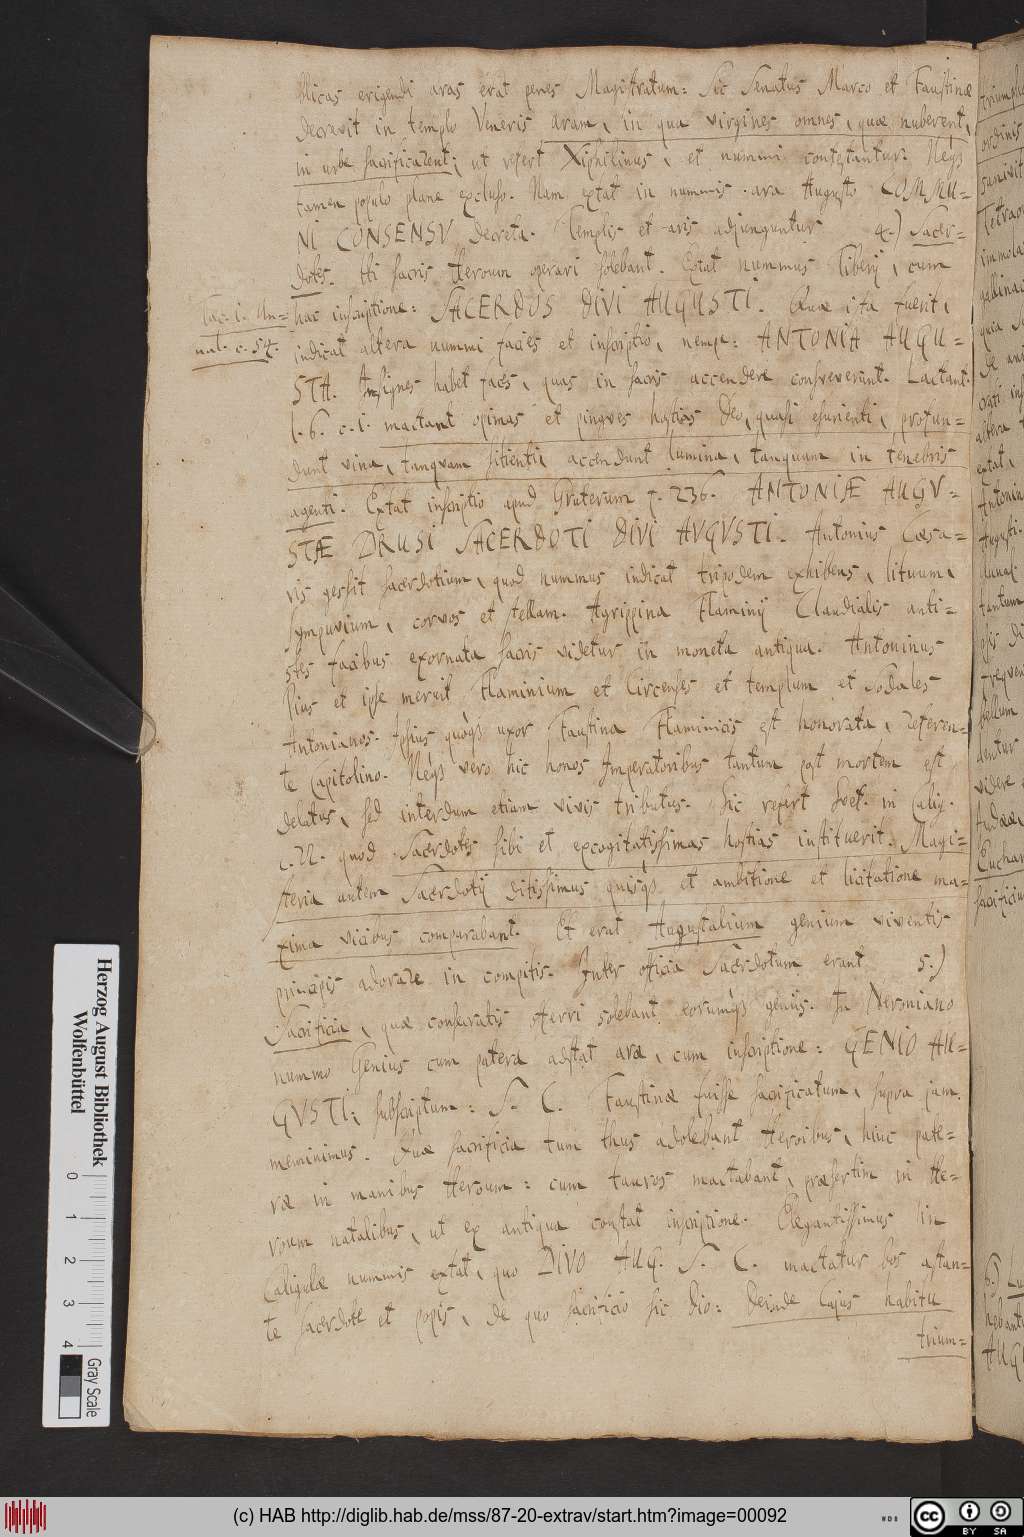 blicas erigendi aras erat penes Magistratum: Sic Senatus Marco et Faustinæ
decrevit in templo Veneris aram, in qua virgines omnes, quæ nuberent,
in urbe sacrificarent; ut refert Xiphilinus, et nummi contestantur. Neqz
tamen populo plane excluso. Nam extat in nummis ara Augusto COMMU=
NI CONSENSV decreta. Templis et aris adjunguntur 4.) Sacer=
dotes. Hi sacris Heroum operari solebant. Extat nummus Tiberij, cum
hac inscriptione: SACERDOS DIVI AUGUSTI. Quæ ista fuerit,
Tac. 1. An=
nal. c. 54.
indicat altera nummi facies et inscriptio, nempe: ANTONIA AUGU=
STA. Insignes habet faces, quas in sacris accendere consveverunt. Lactant.
l. 6. c. 1. mactant opimas et pingves hostias Deo, quasi esurienti, profun=
dunt vina, tanquam sitienti, accendunt lumina, tanquam in tenebris
agenti. Extat inscriptio apud Gruterum p. 236. ANTONIÆ AUGV=
STÆ DRUSI SACERDOTI DIVI AUGVSTI. Antonius Cæsa=
ris gessit sacerdotium, quod nummus indicat tripodem exhibens, lituum,
sympuvium, corvos et stellam. Agrippina Flaminij Claudialis anti=
stes facibus exornata sacris videtur in moneta antiqua. Antoninus
Pius et ipse meruit Flaminium et Circenses et templum et sodales
Antonianos. Ipsius quoqz uxor Faustina Flaminicis est honorata, referen=
te Capitolino. Neqz vero hic honos Imperatoribus tantum post mortem est
delatus, sed interdum etiam vivis tributus. Sic refert Svet. in Calig.
c. 22. quod Sacerdotes sibi et excogitatissimas hostias instituerit. Magi=
steria autem Sacerdotij ditissimus quisqz et ambitione et licitatione ma=
xima vicibus comparabant. Et erat Augustalium genium viventis
principis adorare in compitis. Inter officia Sacerdotum erant 5.)
Sacrificia, quæ consecratis offerri solebant eorumqz geniis. In Neroniano
nummo Genius cum patera adstat aræ, cum inscriptione: GENIO AU=
GVSTI; subscriptum: S. C. Faustinæ fuisse sacrificatum, supra jam
meminimus. Quæ sacrificia tum thus adolebant Heroibus, hinc pate=
ræ in manibus Heroum: cum tauros mactabant, præsertim in He=
roum natalibus, ut ex antiqua constat inscriptione. Elegantissimus in
Caligulæ nummis extat, quo DIVO AUG. S. C. mactatur bos astan=
te sacerdote et popis, de quo sacrificio sic Dio: Deinde Cajus habitu
trium=
Herzog August Bibliothek
Wolfenbüttel
0 1 2 3 4
Gray Scale
(c) HAB http://diglib.hab.de/mss/87-20-extrav/start.htm?image=00092
cc BY SA